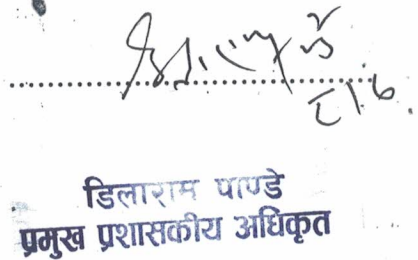 डिलाराम पाण्डे
प्रमुख प्रशासकीय अधिकृत